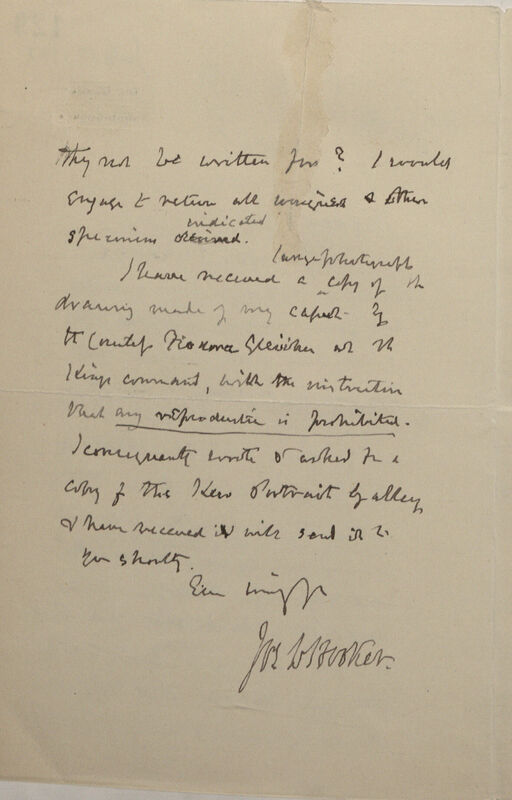 they not be written for? I would
engage to return all uniques & other
specimens indicated.
I have received a large photograph copy of the
drawing made of my caput by
the Countess Feodora Gleichen at the
King's command, with the instruction
that any reproduction is prohibited.
I consequently wrote & asked for a
copy of the Kew Portrait Gallery
& have received it & will send it to
you shortly.
Ever
Jos D Hooker.